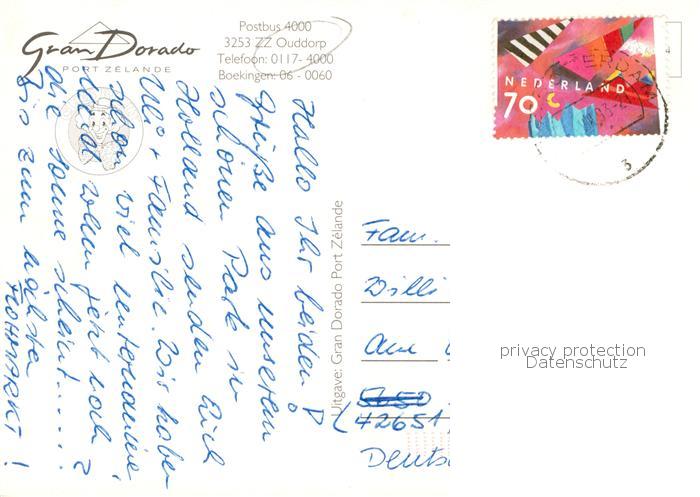 Gran Dorado
PORT ZÉLANDE
Postbus 4000
3253 ZZ Ouddorp
Telefoon: 0117- 4000
Boekingen: 06 - 0060
NEDERLAND
70 c
3
Hallo Ihr beiden!
Grüße aus unserem
schönen Park in
Holland senden Euch
+ Familie. Wir haben
schon viel unternommen,
wenn jetzt noch
die Sonne scheint.....?
Bis zum nächsten
FLOHMARKT!
Uitgave: Gran Dorado Port Zélande
Fam.
Willi
Am
5650
(42651)
Deuts
privacy protection
Datenschutz